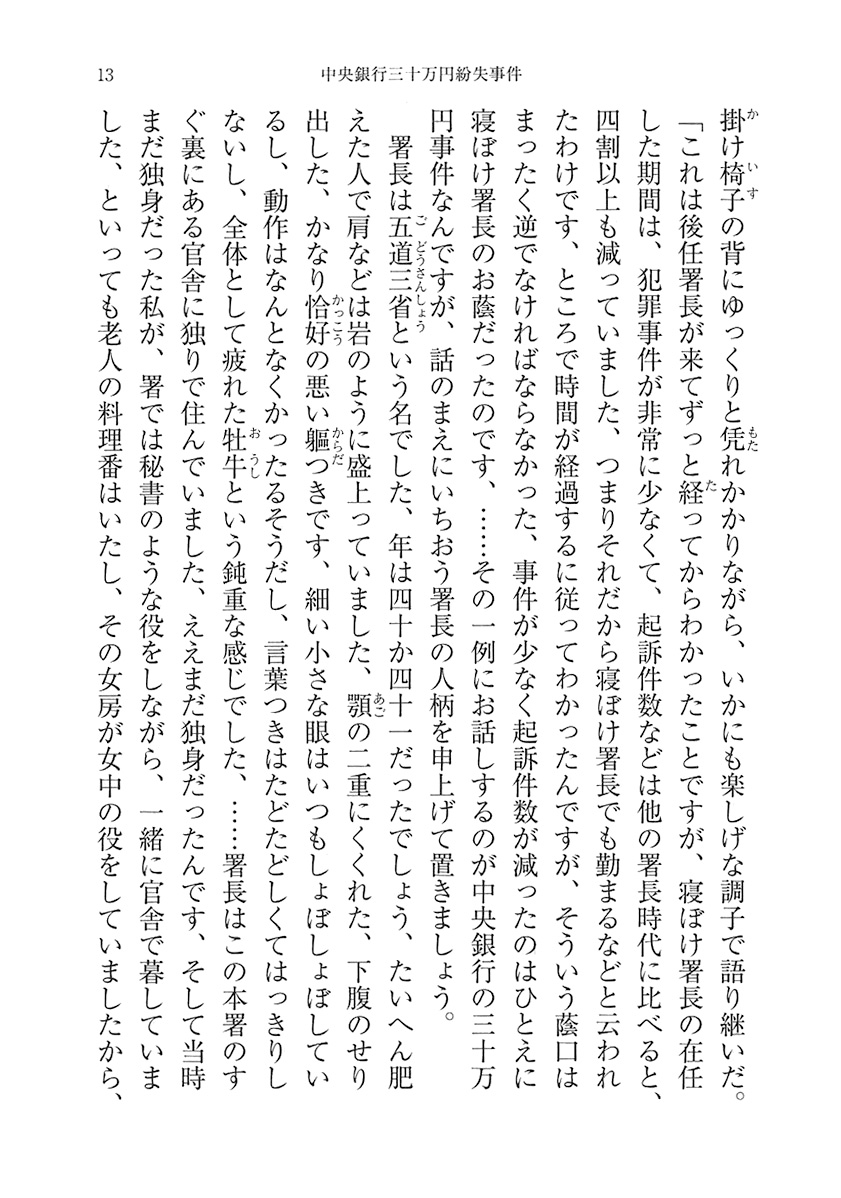 13
中央銀行三十万円紛失事件
掛け椅子の背にゆっくりと凭れかかりながら、いかにも楽しげな調子で語り継いだ。
「これは後任署長が来てずっと経ってからわかったことですが、寝ぼけ署長の在任
した期間は、犯罪事件が非常に少なくて、起訴件数などは他の署長時代に比べると、
四割以上も減っていました、つまりそれだから寝ぼけ署長でも勤まるなどと云われ
たわけです、ところで時間が経過するに従ってわかったんですが、そういう蔭口は
まったく逆でなければならなかった、事件が少なく起訴件数が減ったのはひとえに
寝ぼけ署長のお蔭だったのです、……その一例にお話しするのが中央銀行の三十万
円事件なんですが、話のまえにいちおう署長の人柄を申上げて置きましょう。
署長は五道三省という名でした、年は四十か四十一だったでしょう、たいへん肥
えた人で肩などは岩のように盛上っていました、顎の二重にくくれた、下腹のせり
出した、かなり恰好の悪い軀つきです、細い小さな眼はいつもしょぼしょぼしてい
るし、動作はなんとなくかったるそうだし、言葉つきはたどたどしくてはっきりし
ないし、全体として疲れた牡牛という鈍重な感じでした、……署長はこの本署のす
ぐ裏にある官舎に独りで住んでいました、ええまだ独身だったんです、そして当時
まだ独身だった私が、署では秘書のような役をしながら、一緒に官舎で暮していま
した、といっても老人の料理番はいたし、その女房が女中の役をしていましたから、